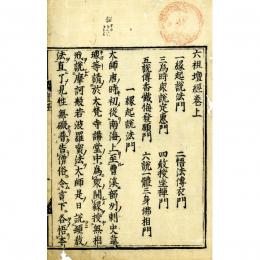 六祖壇經卷上
一緣起說法門　二悟法傳衣門
三為時衆說定惠門　四教授坐禪門
五說傳香懺悔發願門　六說一體三身佛相門
一緣起說法門
大師唐時初從南海上至曹溪韶州刺史韋
璩等請於大梵寺講堂中為衆開緣授無相
戒說摩訶般若波羅蜜法大師是日說頓教
法直了見性無礙普告僧俗令言下各悟本